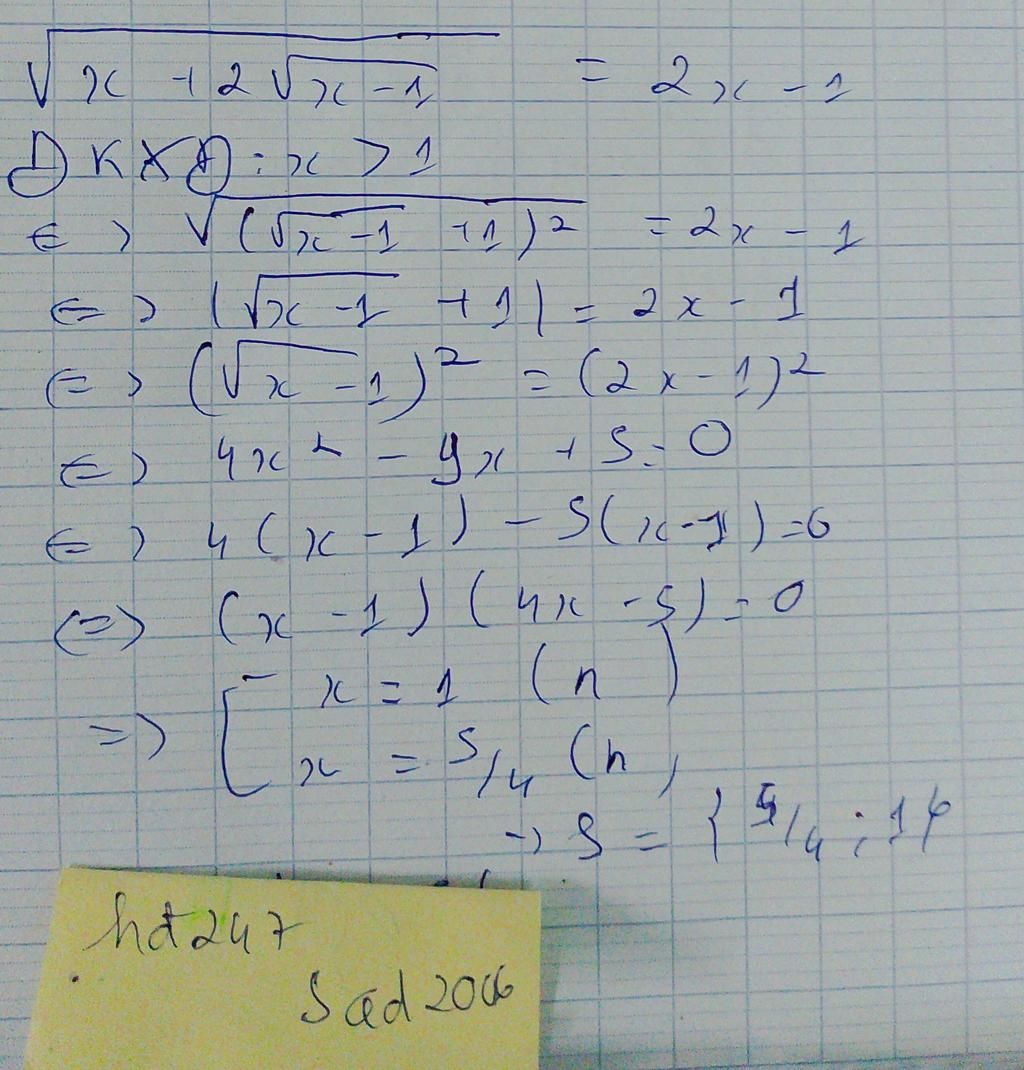 √(x + 2√(x - 1)) = 2x - 1
ĐKXĐ : x > 1
<=> √((√(x - 1) + 1)²) = 2x - 1
<=> |√(x - 1) + 1| = 2x - 1
<=> (√(x - 1))² = (2x - 1)²
<=> 4x² - 9x + 5 = 0
<=> 4(x - 1) - 5(x - 1) = 0
<=> (x - 1)(4x - 5) = 0
=> [ x = 1 (n)
x = 5/4 (n)
-> S = {5/4 ; 1}
hdt247
Sad2006